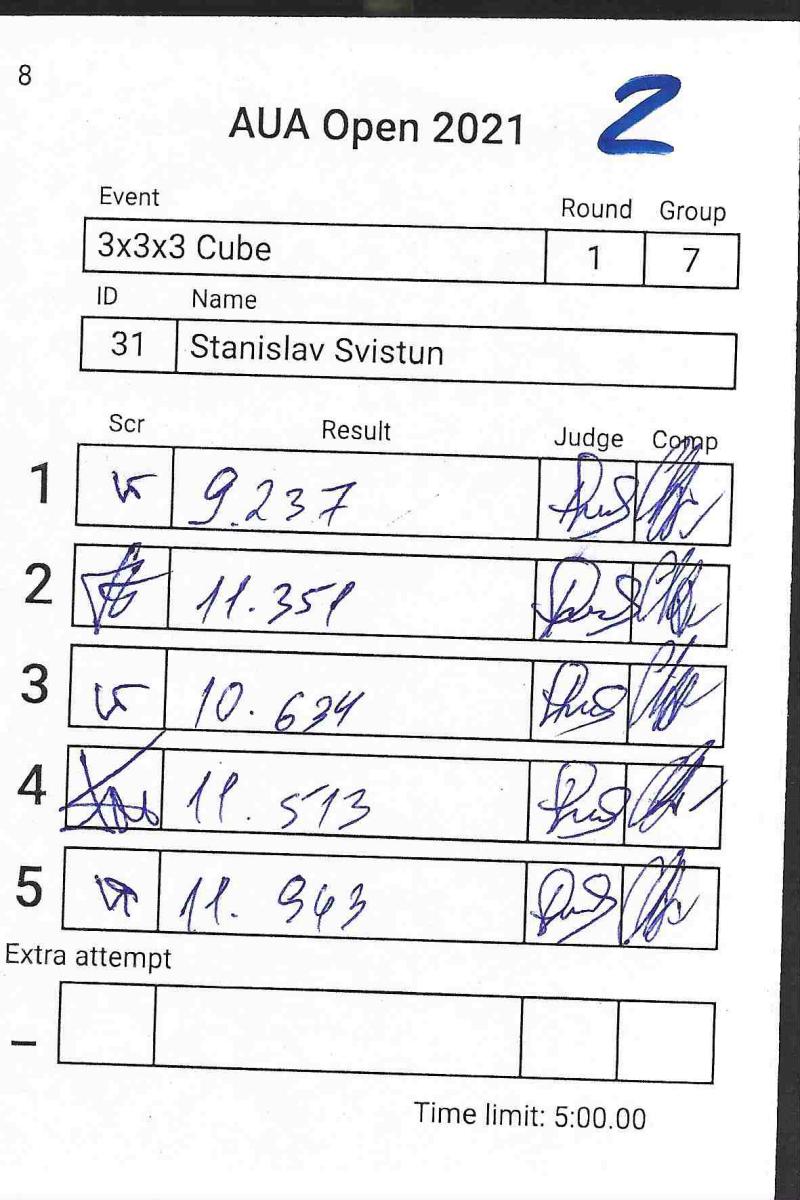 8
AUA Open 2021 2
Event Round Group
3x3x3 Cube 1 7
ID Name
31 Stanislav Svistun
Scr Result Judge Comp
1 9.237
2 11.351
3 10.634
4 11.513
5 11.943
Extra attempt
–
Time limit: 5:00.00